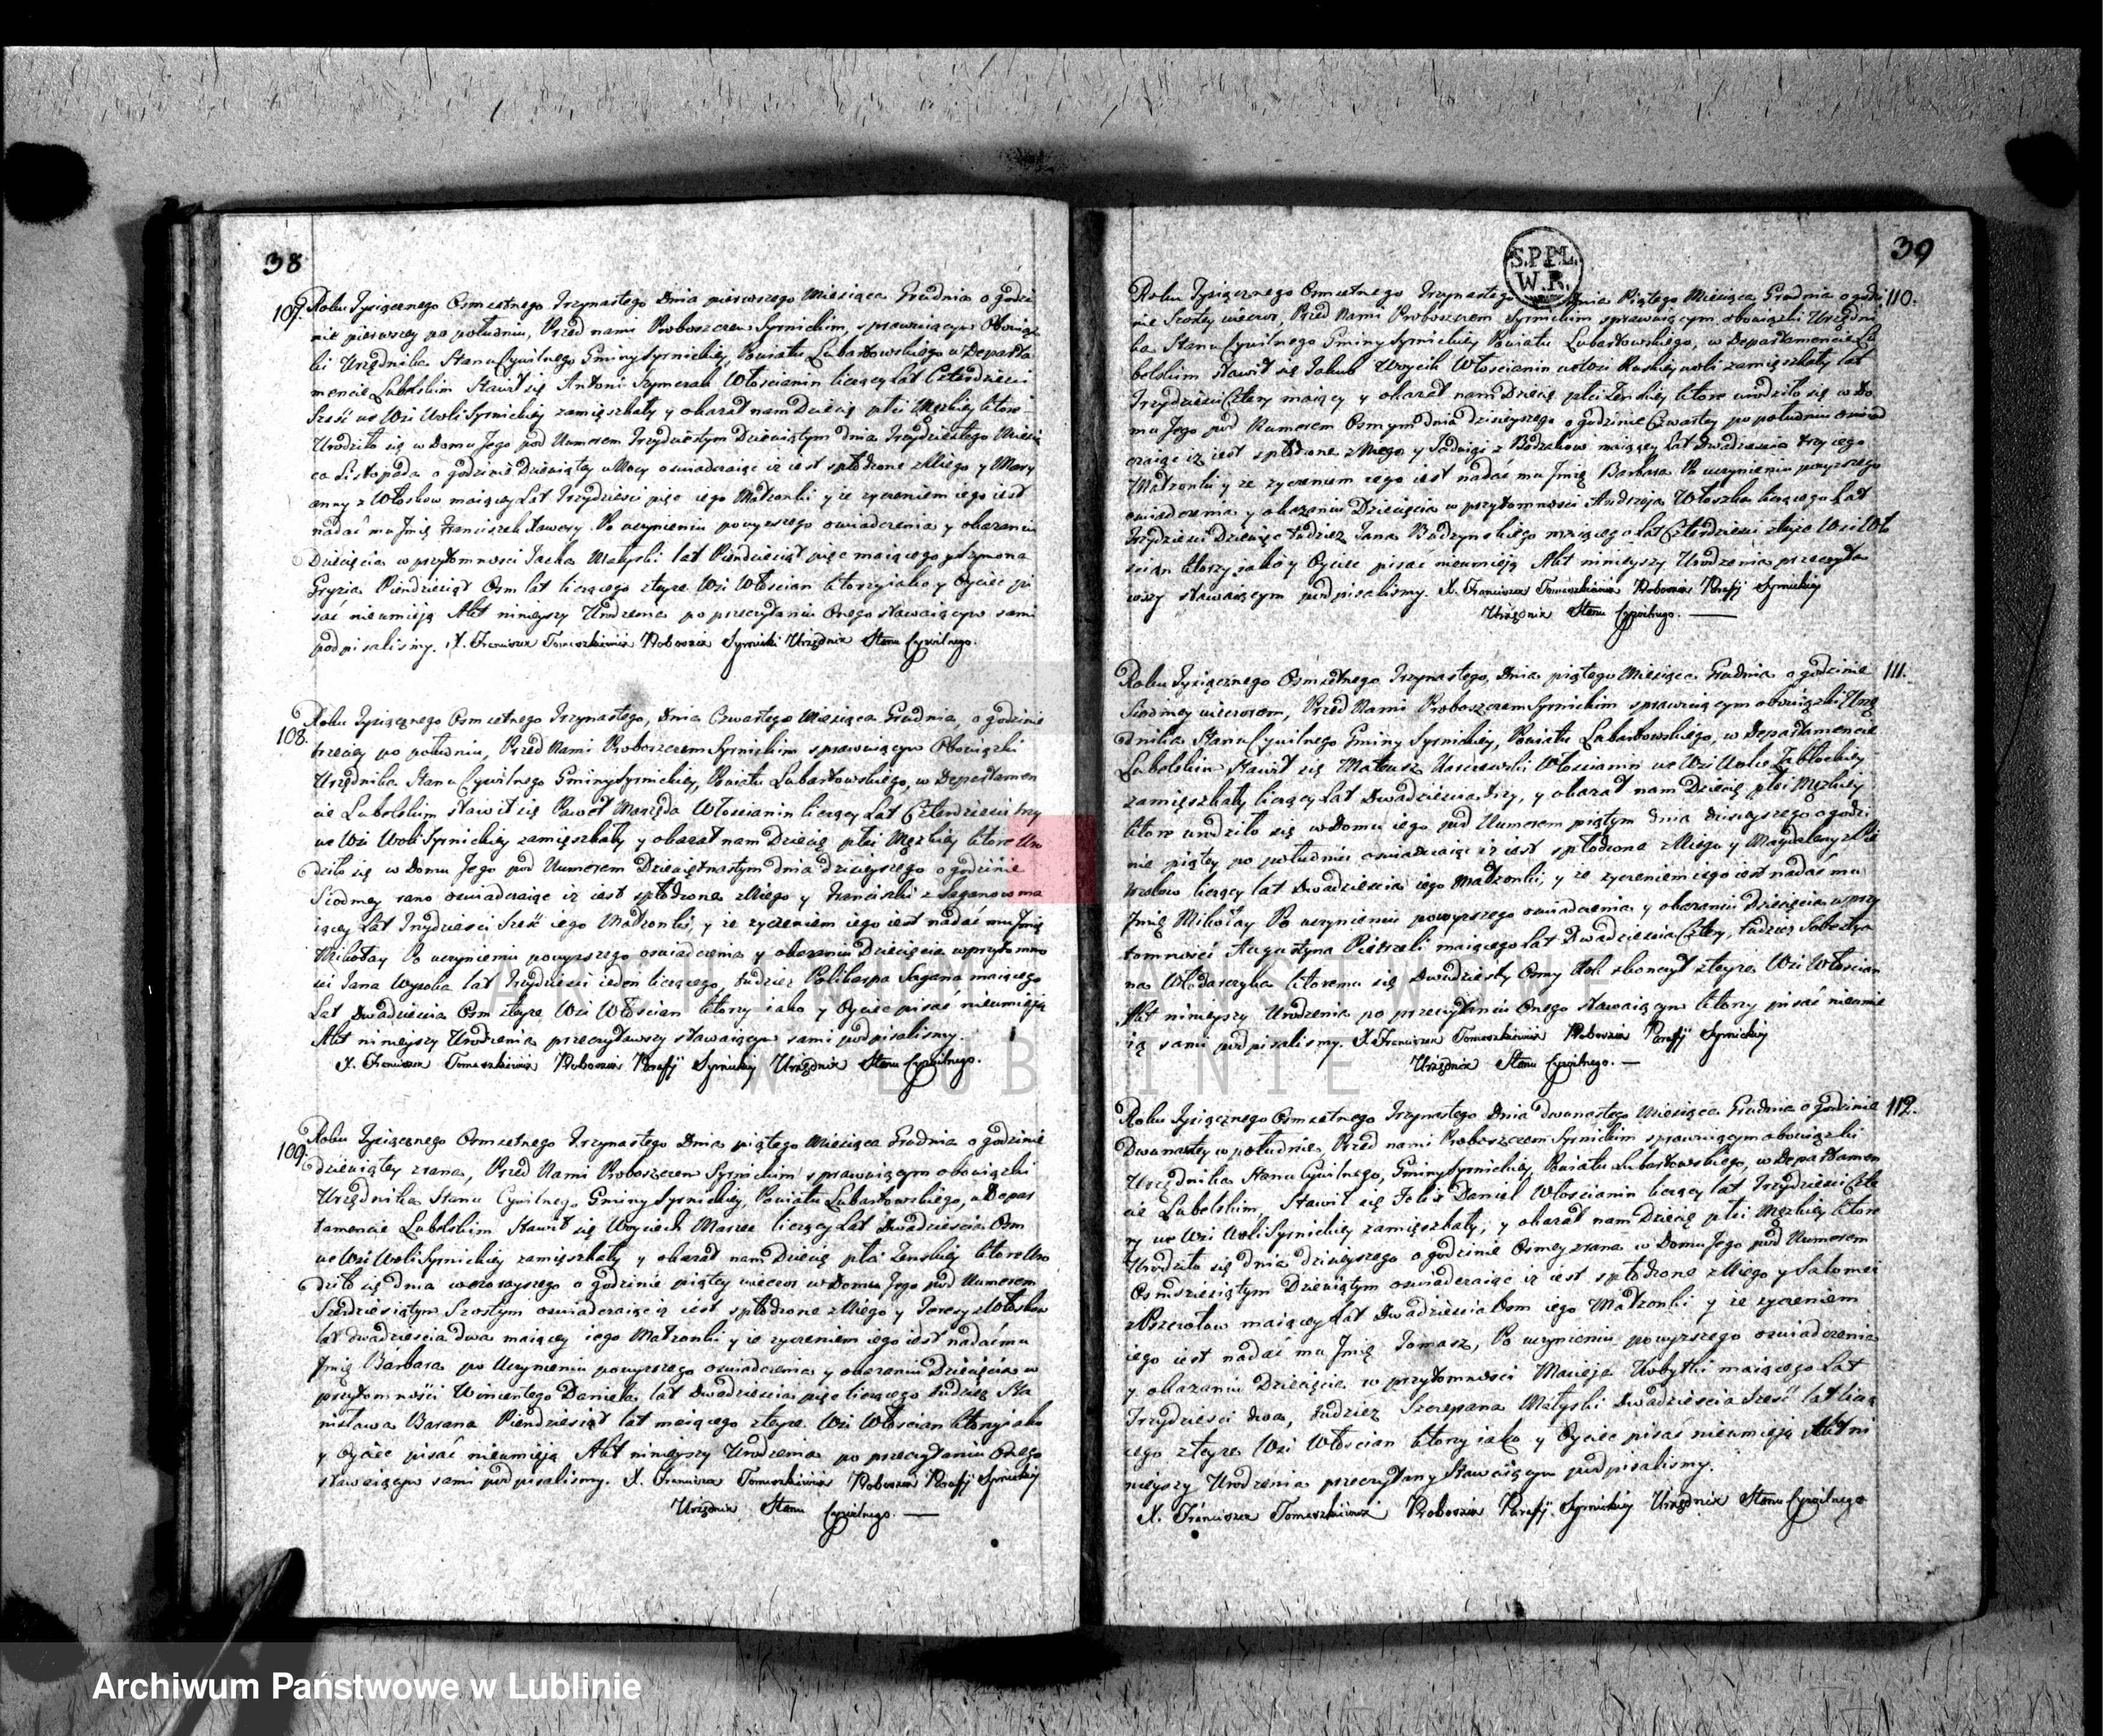 38
107. Roku Tysiącznego Osmsetnego Trzynastego Dnia pierwszego Miesiąca Grudnia o godzi
nie pierwszey po południu, Przed nami Proboszczem Syrnickim, sprawuiącym Obowiąz
ki Urzędnika Stanu Cywilnego Gminy Syrnickiey, Powiatu Lubartowskiego w Departa
mencie Lubelskim Stawił się Antoni Szymczak Włościanin liczący Lat Czterdzieści
Sześć we Wsi Woli Syrnickiey zamięszkały y okazał nam Dziecię płci Męzkiey ktore
Urodziło się w Domu Jego pod Numerem Trzydziestym Dziewiątym dnia Trzydziestego Miesią
ca Listopada o godzinie Dziewiątey w Nocy oswiadczaiąc iż iest spłodzone z Niego y Mary
anny z Włoskow maiącey Lat Trzydzieści pięć iego Małzonki y że zyczeniem iego iest
nadać mu Jmię Franciszek Xawery. Po uczynieniu powyzszego oswiadczenia y okazaniu
Dziecięcia w przytomności Jacka Matyski lat Pięndziesiąt pięć maiącego y Szymona
Gryzia Pięndziesiąt Osm lat liczącego z teyze Wsi Włościan ktorzy iako y Oyciec pi
sać nieumieią Akt ninieyszy Urodzenia po przeczytaniu Onego stawaiącym sami
podpisalismy. X. Franciszek Tomaszkiewicz Proboszcz Syrnicki Urzędnik Stanu Cywilnego.
108. Roku Tysiącznego Osmsetnego Trzynastego, Dnia Czwartego Miesiąca Grudnia, o godzinie
trzeciey po południu, Przed Nami Proboszczem Syrnickim sprawuiącym Obowiązki
Urzędnika Stanu Cywilnego Gminy Syrnickiey, Powiatu Lubartowskiego, w Departamen
cie Lubelskim stawił się Paweł Lat Czterdzieści trzy
we Wsi Woli Syrnickiey zamięszkały y okazał nam Dziecię płci Męzkiey ktore Uro
dziło się w Domu Jego pod Numerem Dziewiętnastym dnia dzisieyszego o godzinie
Siodmey rano oswiadczaiąc iż iest spłodzone z Niego y Franciszki z Saganow ma
iącey Lat Trzydzieści Sześć iego Małzonki, y że zyczeniem iego iest nadać mu Jmię
Mikołay Po uczynieniu powyzszego oswiadczenia y okazaniu Dziecięcia w przytomno
ści Jana Wysoka lat Trzydzieści ieden liczącego, tudziez Polikarpa Sagana maiącego
Lat Dwadzieścia Osm z teyze Wsi Włościan ktorzy iako y Oyciec pisać nieumieią
Akt ninieyszy Urodzenia przeczytawszy stawaiącym sami podpisalismy.
X. Franciszek Tomaszkiewicz Proboszcz Parafij Syrnickiey Urzędnik Stanu Cywilnego.
109. Roku Tysiącznego Osmsetnego Trzynastego Dnia piątego Miesiąca Grudnia o godzinie
dziewiątey zrana, Przed Nami Proboszczem Syrnickim sprawuiącym obowiązki
Urzędnika Stanu Cywilnego Gminy Syrnickiey, Powiatu Lubartowskiego, w Depar
tamencie Lubelskim Stawił się Woyciech Marzec liczący Lat Dwadzieścia Osm
we Wsi Woli Syrnickiey zamięszkały y okazał nam Dziecię płci Zenskiey ktore Uro
dziło się dnia wczorayszego o godzinie piątey wieczor w Domu Jego pod Numerem
Szesdziesiątym Szostym oswiadczaiąc iż iest spłodzone z Niego y Teresy z Włoskow
lat dwadzieścia dwa maiącey iego Małzonki y że zyczeniem iego iest nadać mu
Jmię Barbara po Uczynieniu powyzszego oswiadczenia y okazaniu Dziecięcia w
przytomności Wincentego Daniela lat Dwadzieścia pięć liczącego tudzież Sta
nisława Barana Pięndziesiąt lat maiącego z teyze Wsi Włościan ktorzy iako
y Oyciec pisać nieumieią Akt ninieyszy Urodzenia po przeczytaniu Onego
stawaiącym sami podpisalismy. X. Franciszek Tomaszkiewicz Proboszcz Parafij Syrnickiey
Urzędnik Stanu Cywilnego.
39
S.P.P.L.
W.R.
Roku Tysiącznego Osmsetnego Trzynastego Dnia Piątego Miesiąca Grudnia o godzi 110.
nie Szostey wieczor, Przed Nami Proboszczem Syrnickim sprawuiącym obowiązki Urzędni
ka Stanu Cywilnego Gminy Syrnickiey Powiatu Lubartowskiego, w Departamencie Lu
belskim stawił się Jakub Woycik Włościanin we Wsi Ruskiey woli zamięszkały lat
Trzydzieści Cztery maiący y okazał nam Dziecię płci Zenskiey ktore urodziło się w Do
mu Jego pod Numerem Osmym dnia dzisieyszego o godzinie Czwartey po południu oswiad
czaiąc iż iest spłodzone z Niego y Jadwigi z maiącey Lat Dwadzieścia trzy iego
Małzonki y że zyczeniem iego iest nadać mu Jmię Barbara Po uczynieniu powyzszego
oswiadczenia y okazaniu Dziecięcia w przytomności Andrzeja Włoszka liczącego Lat
Trzydzieści Dziewięć tudziez Jana Budzynskiego maiącego Lat Czterdzieści z teyze Wsi Wło
ścian ktorzy iako y Oyciec pisać nieumieią Akt ninieyszy Urodzenia przeczyta
wszy stawaiącym podpisalismy. X. Franciszek Tomaszkiewicz Proboszcz Parafij Syrnickiey
Urzędnik Stanu Cywilnego.
Roku Tysiącznego Osmsetnego Trzynastego, Dnia piątego Miesiąca Grudnia o godzinie 111.
Siodmey wieczorem, Przed Nami Proboszczem Syrnickim sprawuiącym obowiązki Urzę
dnika Stanu Cywilnego Gminy Syrnickiey, Powiatu Lubartowskiego, w Departamencie
Lubelskim stawił się Mateusz Włościanin we Wsi Wolce Zabłockiey
zamięszkały liczący Lat Dwadzieścia trzy, y okazał nam Dziecię płci Męzkiey
ktore urodziło się w Domu iego pod Numerem piątym dnia dzisieyszego o godzi
nie piątey po południu oswiadczaiąc iż iest spłodzone z Niego y Magdaleny
liczący lat Dwadzieścia iego Małzonki, y że zyczeniem iego iest nadać mu
Jmię Mikołay Po uczynieniu powyzszego oswiadczenia y okazaniu Dziecięcia w przy
tomności Augustyna maiącego Lat Dwadzieścia Cztery, tudziez Sebestya
na Włodarczyka ktoremu się Dwudziesty Osmy Rok skonczył z teyze Wsi Włościan
Akt ninieyszy Urodzenia po przeczytaniu Onego stawaiącym ktorzy pisać nieumie
ią sami podpisalismy. X. Franciszek Tomaszkiewicz Proboszcz Parafij Syrnickiey
Urzędnik Stanu Cywilnego.
Roku Tysiącznego Osmsetnego Trzynastego Dnia dwunastego Miesiąca Grudnia o godzinie 112.
Dwunastey w południe Przed nami Proboszczem Syrnickim sprawuiącym obowiązki
Urzędnika Stanu Cywilnego, Gminy Syrnickiey, Powiatu Lubartowskiego, w Departamen
cie Lubelskim, Stawił się Felix Daniel Włościanin liczący lat Trzydzieści Czte
ry we Wsi Woli Syrnickiey zamięszkały, y okazał nam Dziecię płci Męzkiey ktore
Urodziło się dnia dzisieyszego o godzinie Osmey zrana w Domu Jego pod Numerem
Osmdziesiątym Dziewiątym oswiadczaiąc iż iest spłodzone z Niego y Salomei
maiącey Lat Dwadzieścia Osm iego Małzonki y że zyczeniem
iego iest nadać mu Jmię Tomasz, Po uczynieniu powyzszego oswiadczenia
y okazaniu Dziecięcia w przytomności Macieja Kobyłki maiącego Lat
Trzydzieści dwa, tudziez Szczepana Matyski Dwadzieścia Sześć lat liczą
cego z teyze Wsi Włościan ktorzy iako y Oyciec pisać nieumieią Akt ni
nieyszy Urodzenia przeczytany Stawaiącym podpisalismy.
X. Franciszek Tomaszkiewicz Proboszcz Parafij Syrnickiey Urzędnik Stanu Cywilnego
ARCHIWUM PAŃSTWOWE
W LUBLINIE
Archiwum Państwowe w Lublinie